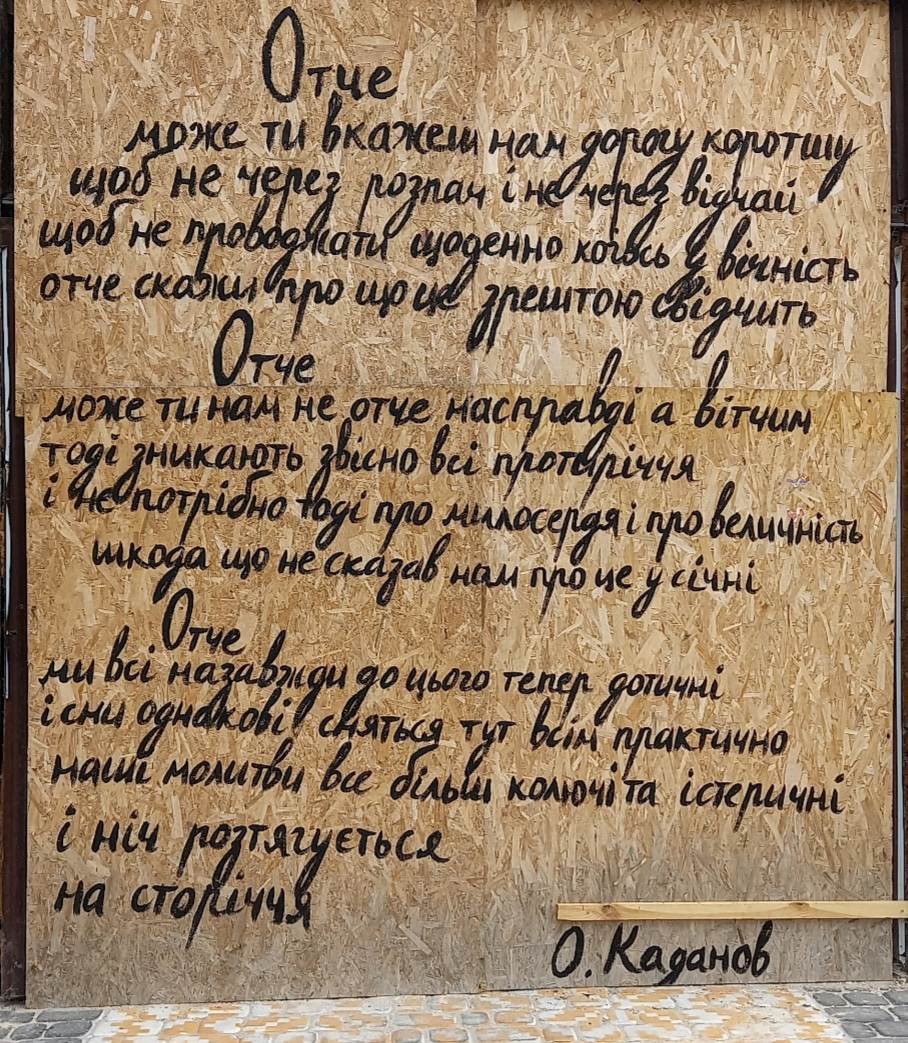 Отче
може ти вкажеш нам дорогу коротшу
щоб не через розпач і не через відчай
щоб не проводжати щоденно когось у вічність
отче скажи про що це зрештою свідчить
Отче
може ти нам не отче насправді а вітчим
тоді зникають звісно всі протиріччя
і не потрібно тоді про милосердя і про величність
шкода що не сказав нам про це у січні
Отче
ми всі назавжди до цього тепер дотичні
і сни однакові сняться тут всім практично
наші молитви все більш колючі та істеричні
і ніч розтягується
на сторіччя
О. Каданов